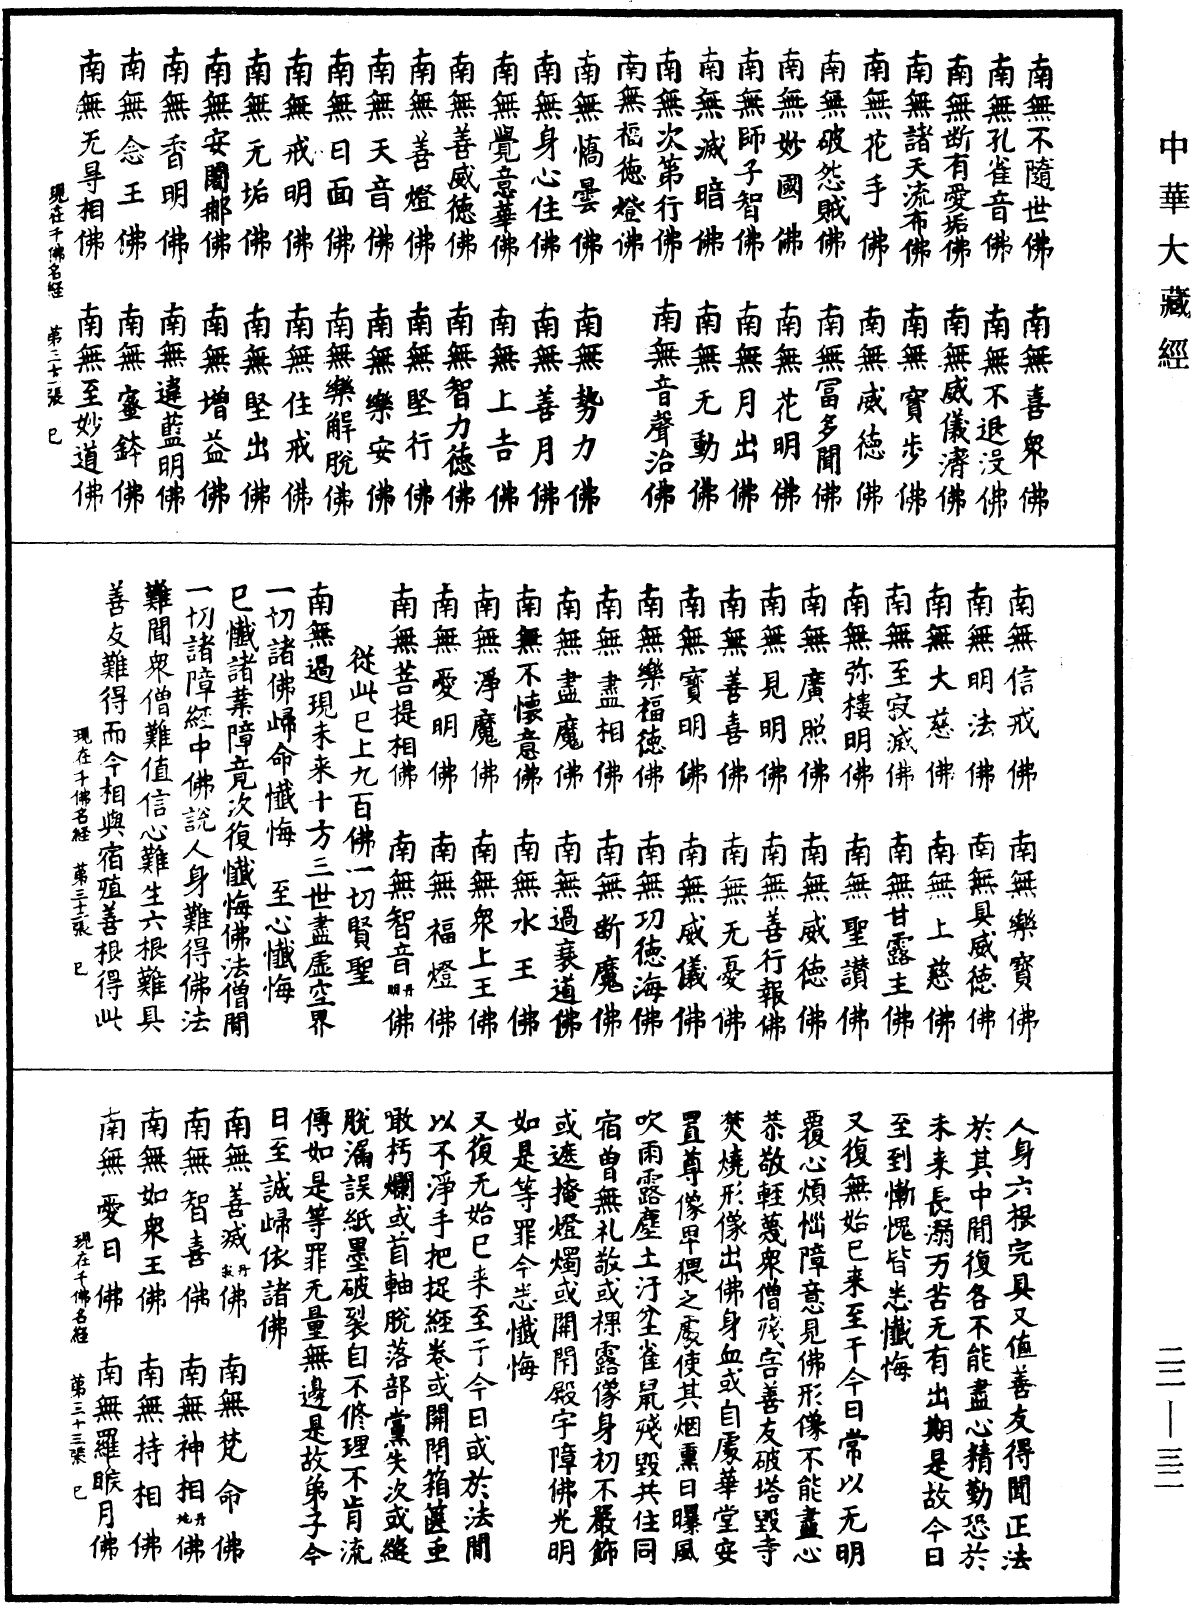 中華大藏經
南無不隨世佛　南無喜衆佛
南無孔雀音佛　南無不退没佛
南無断有愛垢佛　南無威儀濟佛
南無諸天流布佛　南無寶步佛
南無花手佛　南無威德佛
南無破怨賊佛　南無冨多聞佛
南無妙國佛　南無花明佛
南無師子智佛　南無月出佛
南無滅暗佛　南無无動佛
南無次第行佛　南無音聲治佛
南無福德燈佛
南無憍曇佛　南無勢力佛
南無身心住佛　南無善月佛
南無覺意華佛　南無上吉佛
南無善威德佛　南無智力德佛
南無善燈佛　南無堅行佛
南無天音佛　南無樂安佛
南無日面佛　南無樂解脫佛
南無戒明佛　南無住戒佛
南無无垢佛　南無堅出佛
南無安闍那佛　南無增益佛
南無香明佛　南無違藍明佛
南無念王佛　南無蜜鉢佛
南無无㝵相佛　南無至妙道佛
現在千佛名経　第三十一張　巳
南無信戒佛　南無樂寶佛
南無明法佛　南無具威德佛
南無大慈佛　南無上慈佛
南無至寂滅佛　南無甘露主佛
南無弥樓明佛　南無聖讃佛
南無廣照佛　南無威德佛
南無見明佛　南無善行報佛
南無善喜佛　南無无憂佛
南無寶明佛　南無威儀佛
南無樂福德佛　南無功德海佛
南無盡相佛　南無断魔佛
南無盡魔佛　南無過衰道佛
南無不懷意佛　南無水王佛
南無淨魔佛　南無衆上王佛
南無愛明佛　南無福燈佛
南無菩提相佛　南無智音丹明佛
從此巳上九百佛一切賢聖
南無過現未来十方三世盡虛空界
一切諸佛歸命懺悔　至心懺悔
巳懺諸業障竟次復懺悔佛法僧間
一切諸障經中佛說人身難得佛法
難聞衆僧難值信心難生六根難具
善友難得而今相與宿殖善根得此
現在千佛名経　第三十二張　巳
人身六根完具又值善友得聞正法
於其中間復各不能盡心精勤恐於
未来長溺万苦无有出期是故今日
至到慚愧皆悉懺悔
又復無始巳来至于今日常以无明
覆心煩惱障意見佛形像不能盡心
恭敬輕蔑衆僧殘害善友破塔毀寺
焚燒形像出佛身血或自處華堂安
置尊像卑猥之處使其烟熏日曝風
吹雨露塵土汙坌雀鼠殘毀共住同
宿曽無礼敬或裸露像身初不嚴飾
或遮掩燈燭或開閇殿宇障佛光明
如是等罪今悉懺悔
又復无始巳来至于今日或於法間
以不淨手把捉経卷或開閇箱篋虫
噉朽爛或首軸脫落部黨失次或縫
脫漏誤紙墨破裂自不修理不肯流
傳如是等罪无量無邊是故弟子今
日至誠歸依諸佛
南無善滅丹佛　南無梵命佛
南無智喜佛　南無神相丹佛
南無如衆王佛　南無持相佛
南無愛日佛　南無羅睺月佛
現在千佛名経　第三十三張　巳
二二—三二